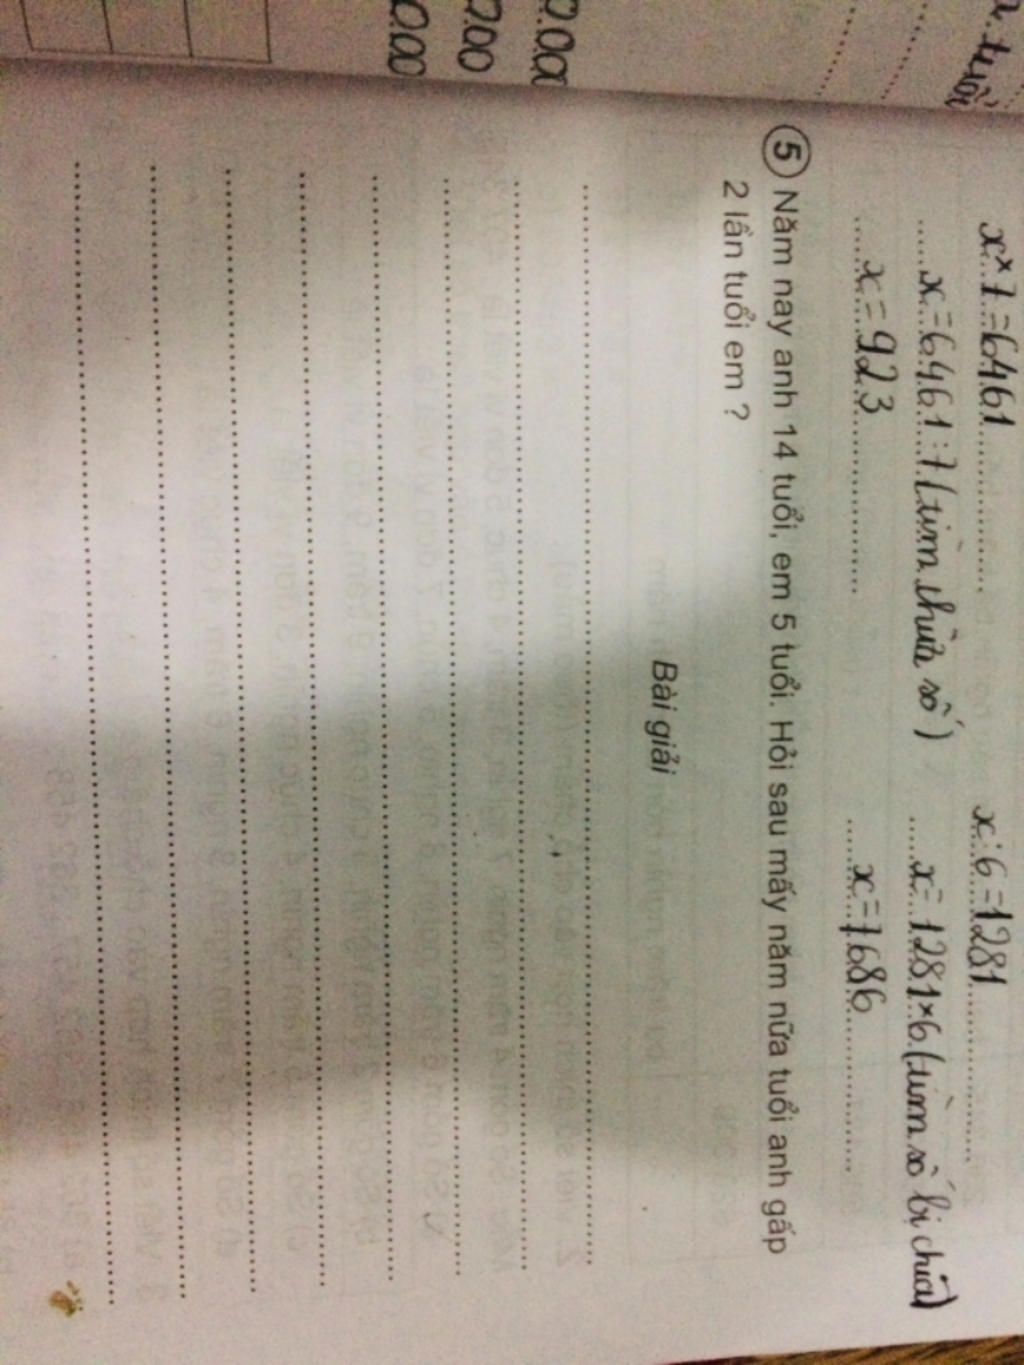 x × 7 = 6461
x = 6461 : 7 (tìm thừa số)
x = 923
x : 6 = 1281
x = 1281 × 6 (tìm số bị chia)
x = 7686
5 Năm nay anh 14 tuổi, em 5 tuổi. Hỏi sau mấy năm nữa tuổi anh gấp
2 lần tuổi em ?
Bài giải
tuổi